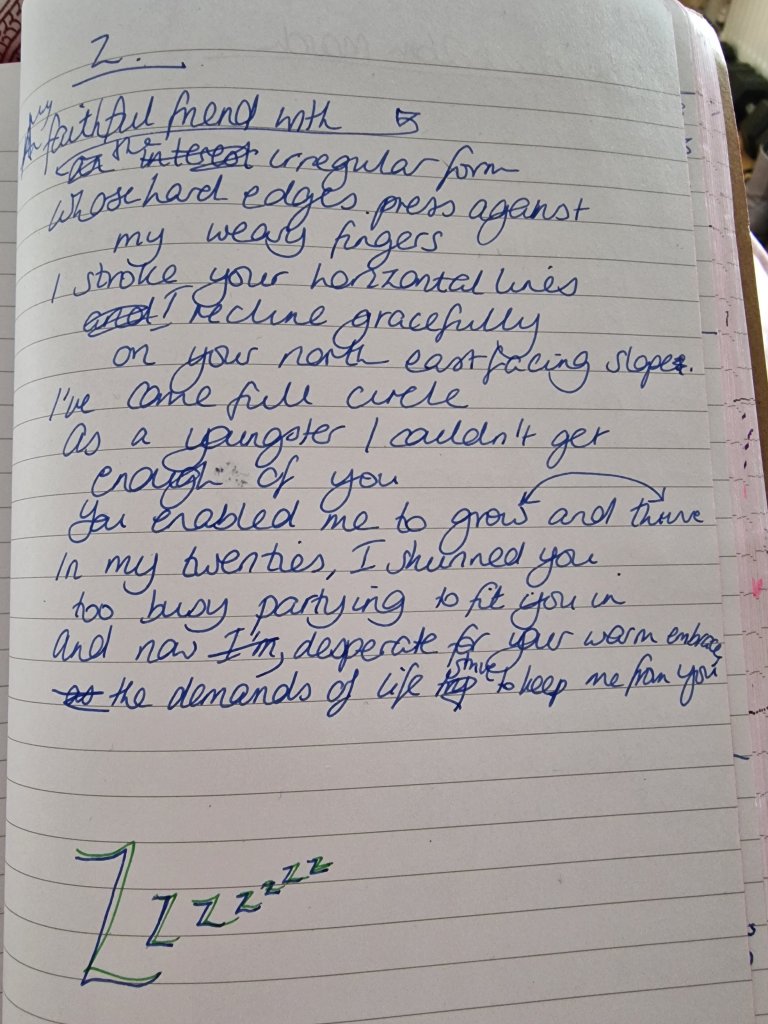 Z.
My
A faithful friend with
an the interest irregular form
whose hard edges press against
my weary fingers
I stroke your horizontal lines
and I recline gracefully
on your north east facing slope.
I've come full circle
As a youngster I couldn't get
enough of you
You enabled me to grow and thrive
In my twenties, I shunned you
too busy partying to fit you in
and now I'm, desperate for your warm embrace
as the demands of life strive to keep me from you
Z z z z z z z